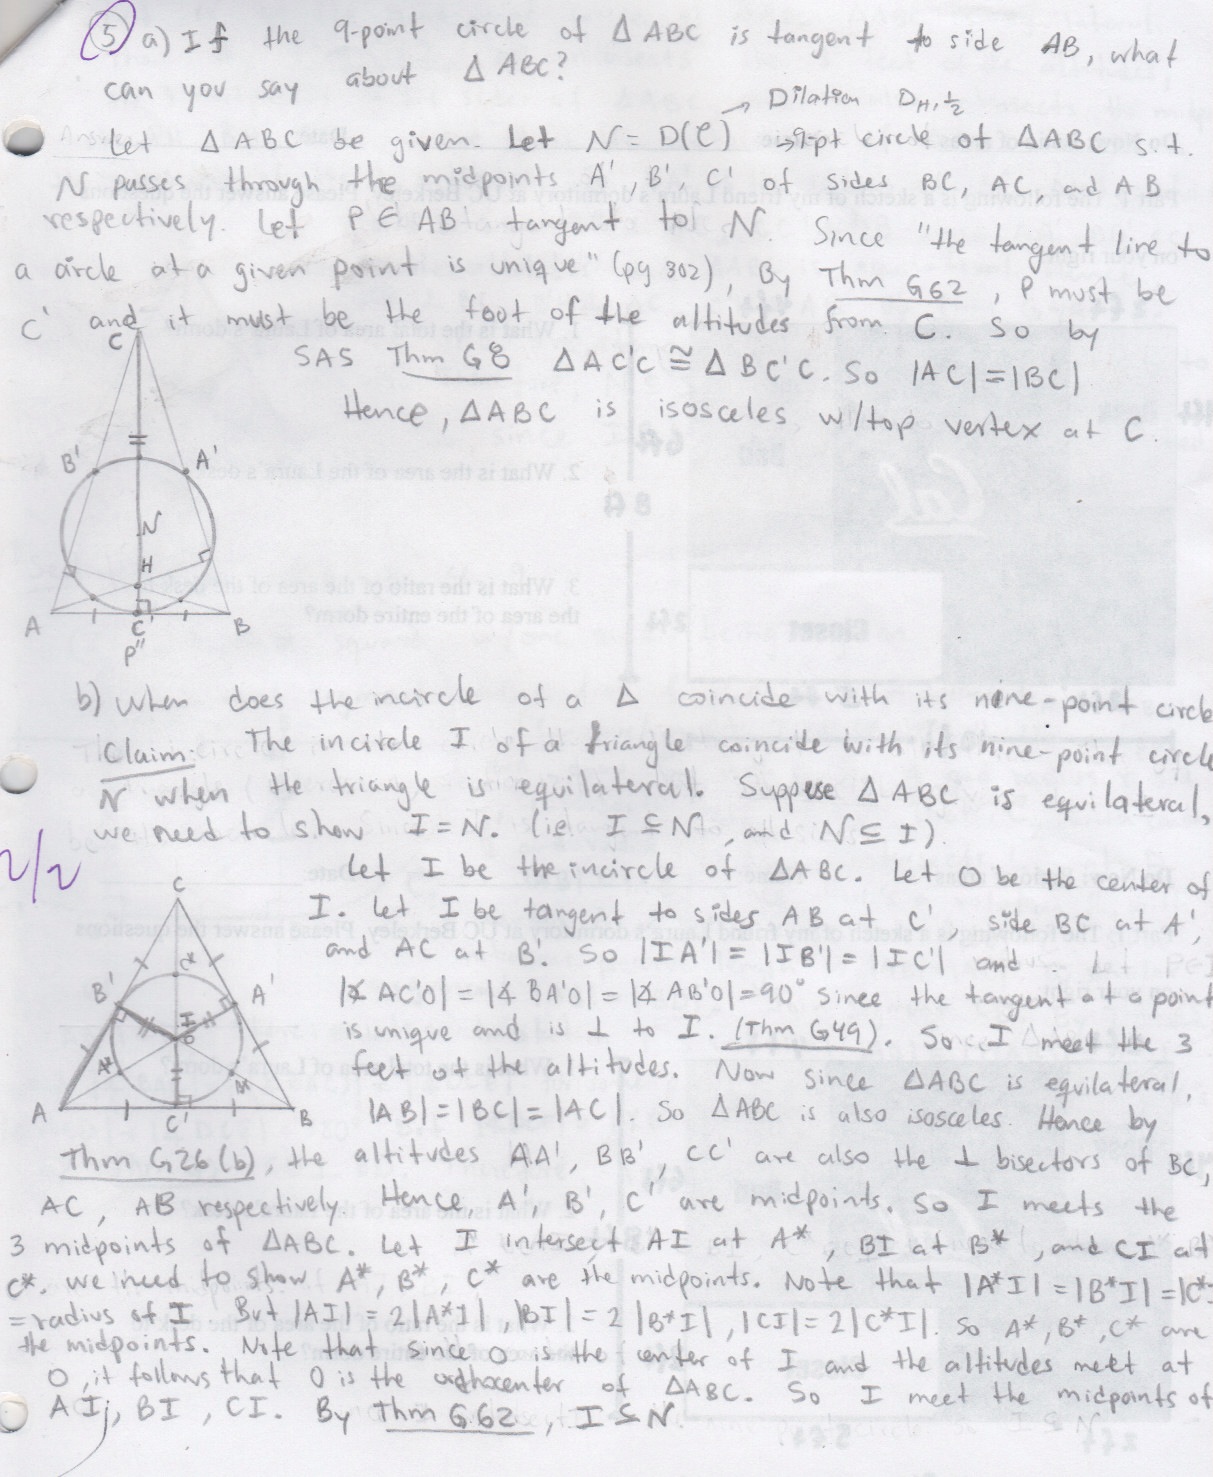 5 a) If the 9-point circle of △ABC is tangent to side AB, what
can you say about △ABC?
→ Dilation D_{H,½}
Let △ABC be given. Let N = D(C) → 9-pt circle of △ABC s.t.
N passes through the midpoints A', B', C' of sides BC, AC, ad AB
respectively. Let P ∈ AB tangent to N. Since "the tangent line to
a circle at a given point is unique" (pg 302), By Thm G62, P must be
C' and it must be the foot of the altitudes from C. So by
SAS Thm G8 △AC'C ≅ △BC'C. So |AC|=|BC|
Hence, △ABC is isosceles w/top vertex at C.
C
B' A'
N
H
A C' B
P"
b) When does the incircle of a △ coincide with its nine-point circle
Claim: The incircle I of a triangle coincide with its nine-point circle
N when the triangle is equilateral. Suppose △ABC is equilateral,
we need to show I=N. (ie. I ⊆ N, and N ⊆ I).
2/2
Let I be the incircle of △ABC. Let O be the center of
I. Let I be tangent to sides AB at C', side BC at A',
and AC at B'. So |IA'| = |IB'| = |IC'| and
|∡ AC'O| = |∡ BA'O| = |∡ AB'O| = 90° since the tangent at a point
is unique and is ⊥ to I. (Thm G49). So I meet the 3
feet of the altitudes. Now since △ABC is equilateral,
|AB|=|BC|=|AC|. So △ABC is also isosceles. Hence by
C
C*
B' A'
I
O
A* B*
A C' B
Thm G26(b), the altitudes AA', BB', CC' are also the ⊥ bisectors of BC,
AC, AB respectively. Hence, A', B', C' are midpoints. So I meets the
3 midpoints of △ABC. Let I intersect AI at A*, BI at B*, and CI at
C*. We need to show A*, B*, C* are the midpoints. Note that |A*I| = |B*I| = |C*I
= radius of I But |AI| = 2|A*I|, |BI| = 2|B*I|, |CI| = 2|C*I|. So A*, B*, C* are
the midpoints. Note that since O is the center of I and the altitudes meet at
O, it follows that O is the orthocenter of △ABC. So I meet the midpoints of
AI, BI, CI. By Thm G62, I ⊆ N.